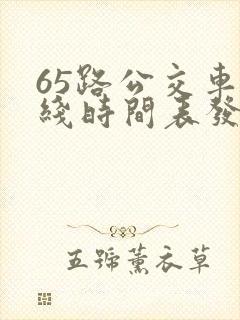 65路公交車
綫時間表發
五號薰衣草